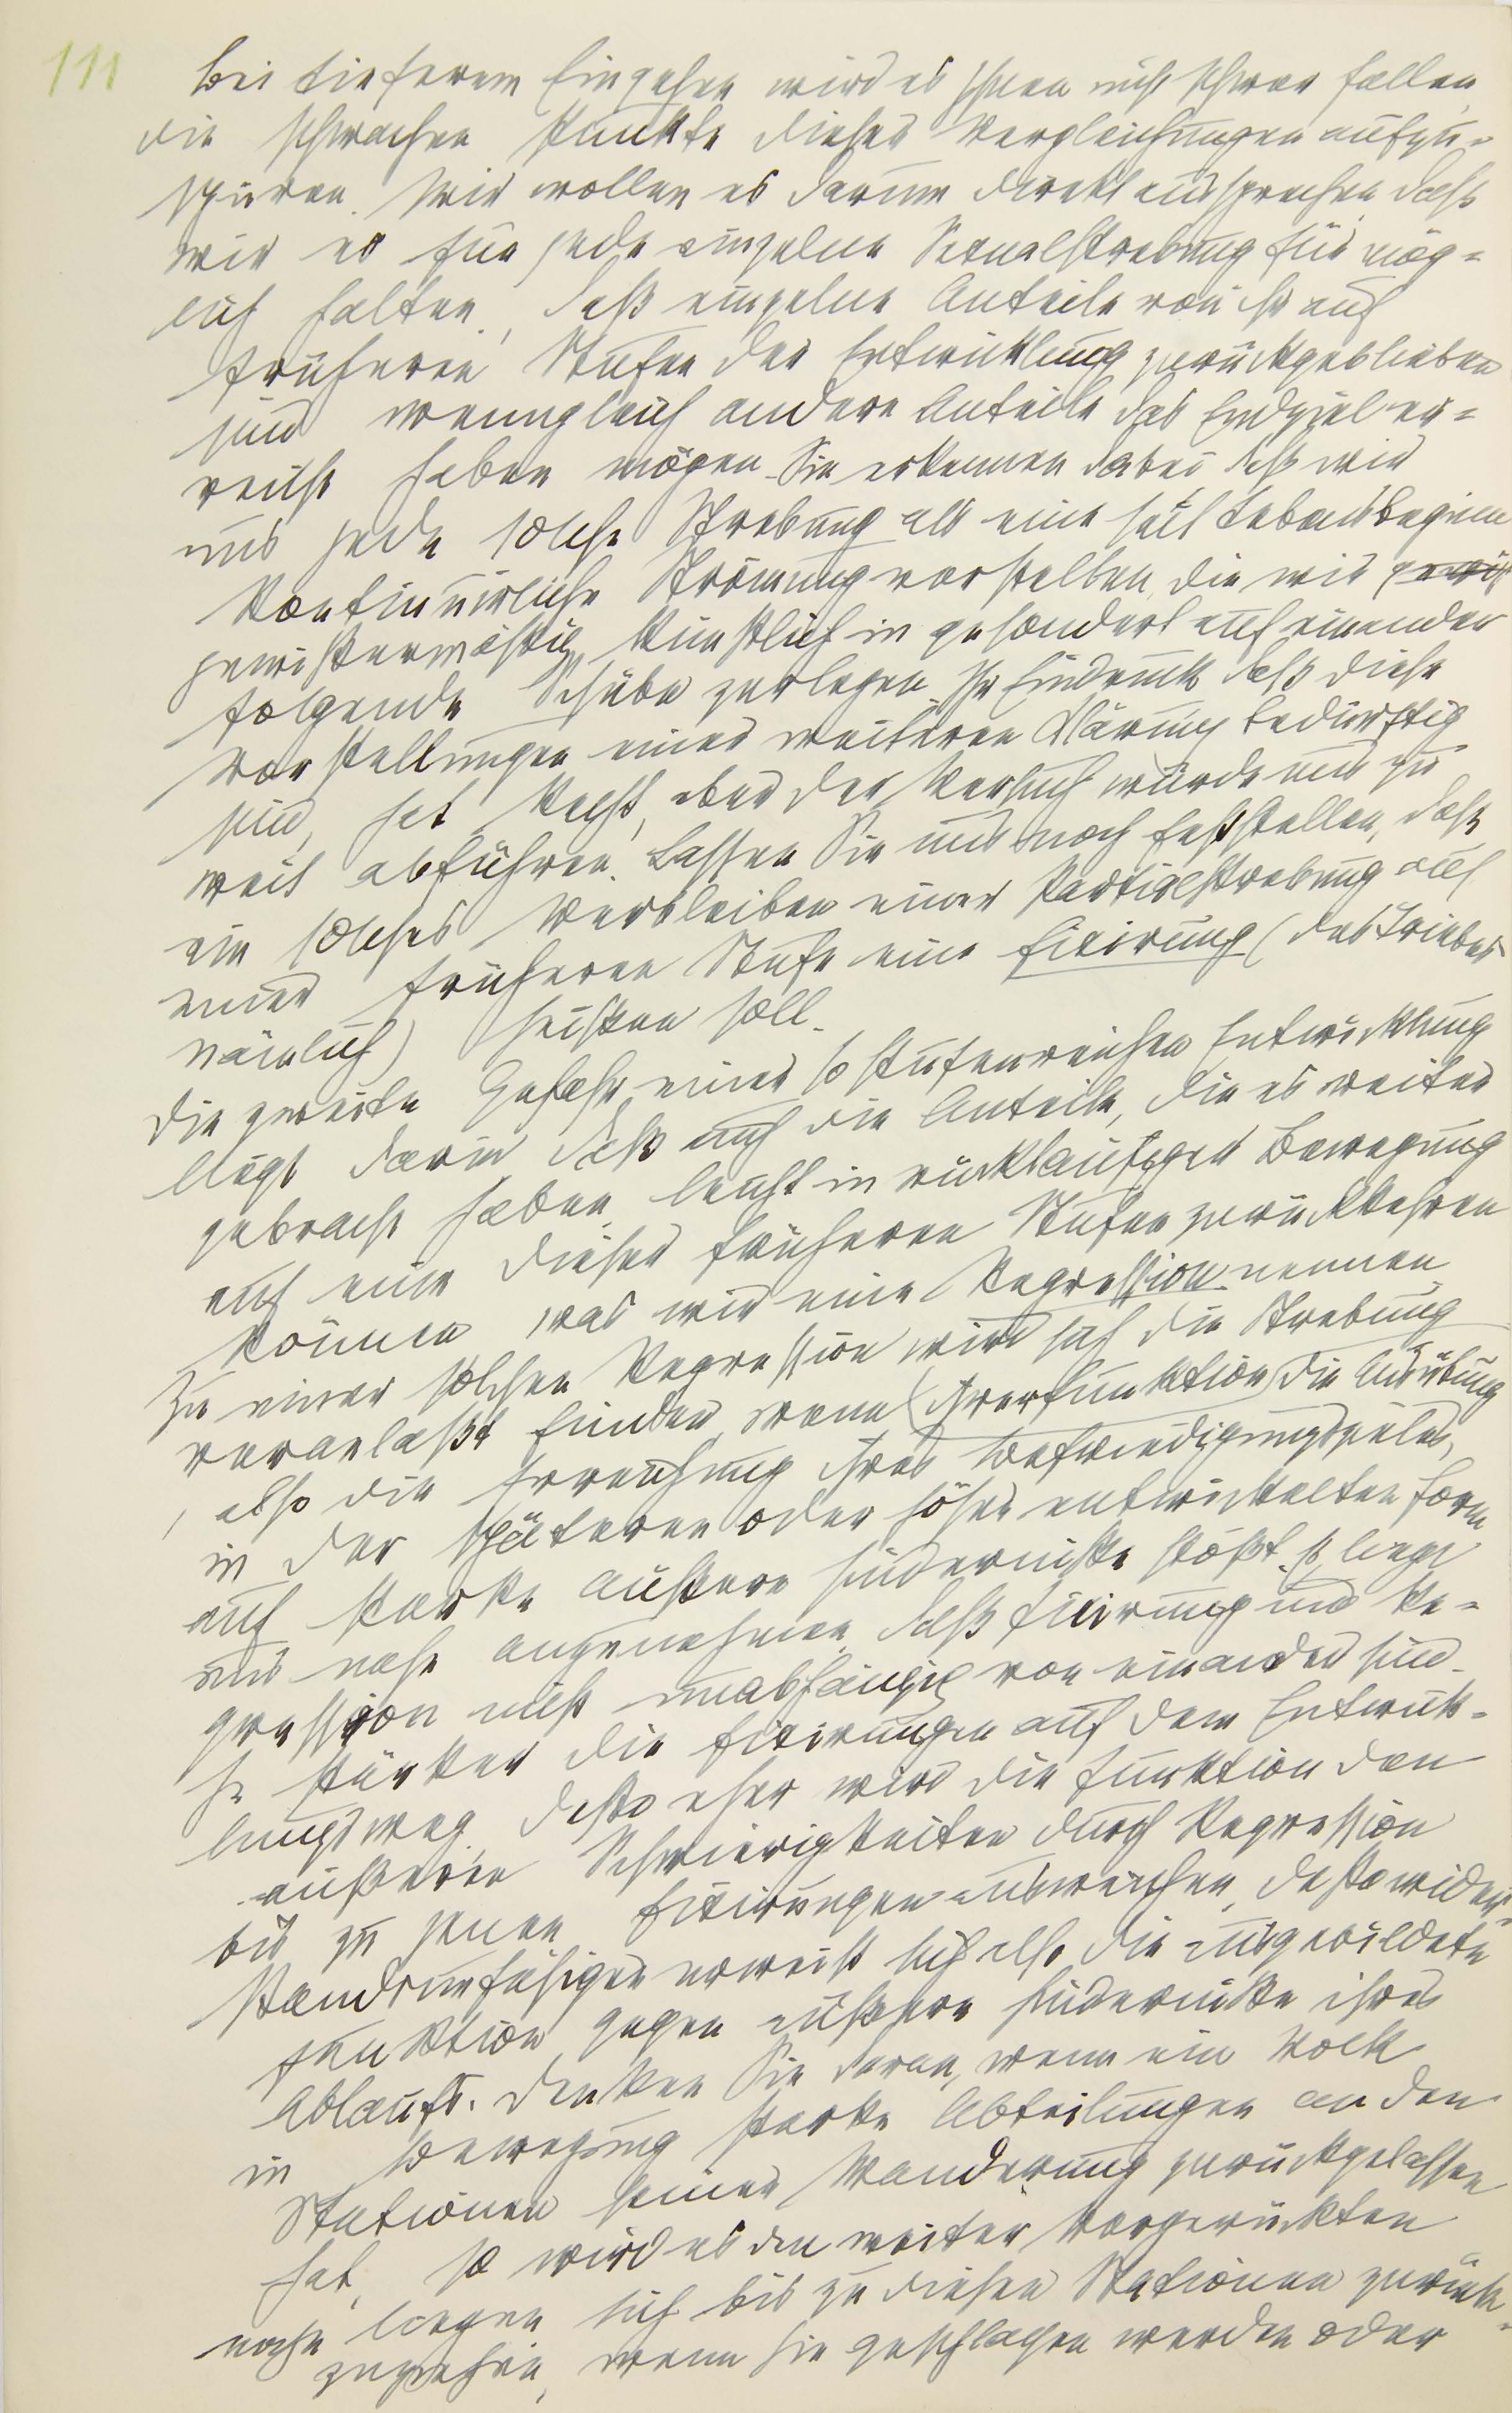 111
Bei tieferem Eingehen wird es Ihnen nicht schwer fallen
die schwachen Punkte dieser Vergleichungen aufzu-
spüren. Wir wollen es darum direkt aussprechen, daß
wir es für jede einzelne Sexualstrebung für mög-
lich halten, daß einzelne Anteile von ihr auf
früheren Stufen der Entwicklung zurückgeblieben
sind wenngleich andere Anteile das Endziel er-
reicht haben mögen. Sie erkennen dabei daß wir
uns jede solche Strebung als eine seit Lebensbeginn
kontinuirliche Strömung vorstellen, die wir
gewissermaßen künstlich in gesondert auf einander
folgende Schübe zerlegen. Ihr Eindruck daß diese
Vorstellungen einer weiteren Klärung bedürftig
sind, hat Recht, aber der Versuch würde uns zu
weit abführen. Lassen Sie uns noch feststellen, daß
ein solches Verbleiben einer Partialstrebung auf
einer früheren Stufe eine Fixirung (des Triebes
nämlich) heißen soll.
Die zweite Gefahr einer so stufenreichen Entwicklung
liegt darin daß auch die Anteile, die es weiter
gebracht haben leicht in rückläufiger Bewegung
auf eine dieser früheren Stufen zurückkehren
können, was wir eine Regression nennen.
Zu einer solchen Regression wird sich die Strebung
veranlaßt finden, wenn die Ausübung ihrer Funktion
, also die Erreichung ihres Befriedigungszieles,
in der späteren oder höher entwickelten Form
auf starke äußere Hindernisse stößt. Es liegt
uns nahe anzunehmen, daß Fixirung und Re-
gression nicht unabhängig von einander sind.
Je stärker die Fixirungen auf dem Entwick-
lungsweg, desto eher wird die Funktion den
äußeren Schwierigkeiten durch Regression
bis zu jenen Fixirungen ausweichen, desto wider-
standsunfähiger erweist sich also die ausgebildete
Funktion gegen äußere Hindernisse ihres
Ablaufs. Denken Sie daran, wenn ein Volk
in Bewegung starke Abteilungen an den
Stationen seiner Wanderung zurückgelassen
hat, so wird es den weiter Vorgerückten
nahe liegen sich bis zu diesen Stationen zurück-
zuziehen, wenn sie geschlagen werden oder